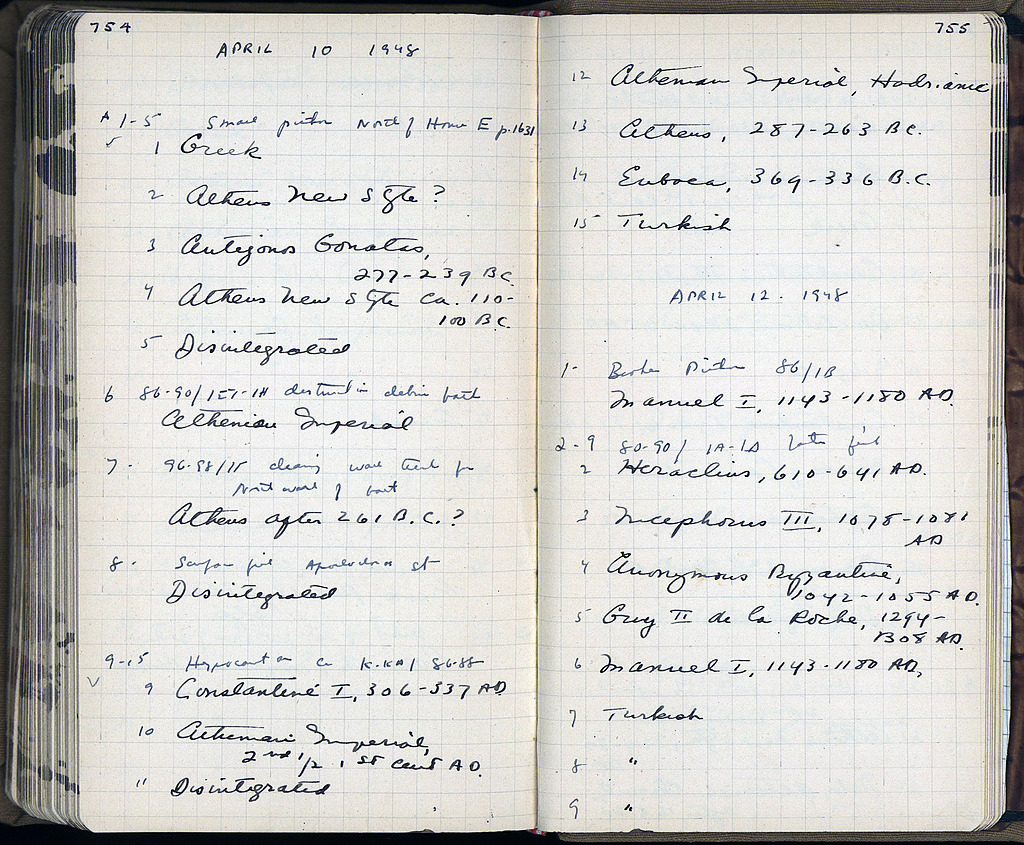 754
APRIL 10 1948
A 1-5 Small North of House E p.1631
✓ 1 Greek
2 Athens New Style ?
3 Antigonos Gonatas,
277-239 B.C.
4 Athens New Style Ca. 110-
100 B.C.
5 Disintegrated
6 86-90/ destruction debris
Athenian Imperial
7. 96-98/ cleaning for
North wall of
Athens after 261 B.C. ?
8. Surface fill Apostolos St
Disintegrated
9-15 86-88
✓ 9 Constantine I, 306-337 AD
10 Athenian Imperial,
2nd 1/2 1st cent AD.
11 Disintegrated
755
12 Athenian Imperial, Hadrianic
13 Athens, 287-263 B.C.
14 Euboea, 369-336 B.C.
15 Turkish
APRIL 12. 1948
1- 86/1B
Manuel I, 1143-1180 AD.
2-9 80-90/ 1A-1D Late fill
2 Heraclius, 610-641 AD.
3 Nicephorus III, 1078-1081
AD
4 Anonymous Byzantine,
1042-1055 AD.
5 Guy II de la Roche, 1294-
1308 AD.
6 Manuel I, 1143-1180 AD,
7 Turkish
8 "
9 "